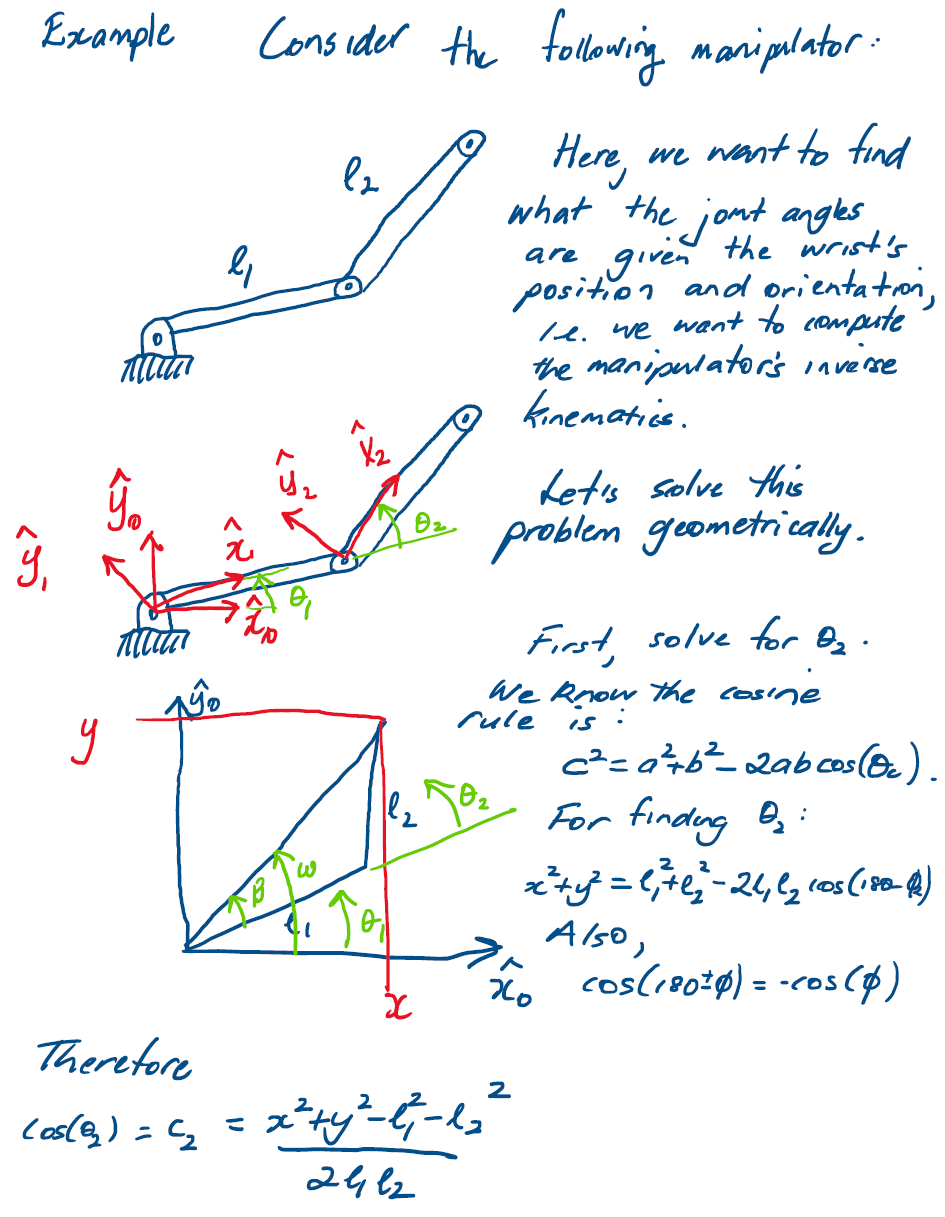 Example Consider the following manipulator:
l₂
l₁
Here, we want to find
what the joint angles
are given the wrist's
position and orientation,
i.e. we want to compute
the manipulator's inverse
kinematics.
ŷ₁
ŷ₀
x̂₁
x̂₀
θ₁
ŷ₂
x̂₂
θ₂
Let's solve this
problem geometrically.
First, solve for θ₂.
We know the cosine
rule is:
c² = a²+b² - 2ab cos(θc).
For finding θ₂:
x²+y² = l₁²+l₂² - 2l₁l₂ cos(180-θ₂)
Also,
cos(180±φ) = -cos(φ)
y
ŷ₀
l₂
θ₂
β
ω
l₁
θ₁
x̂₀
x
Therefore
cos(θ₂) = c₂ = (x²+y²-l₁²-l₂²) / (2l₁l₂)